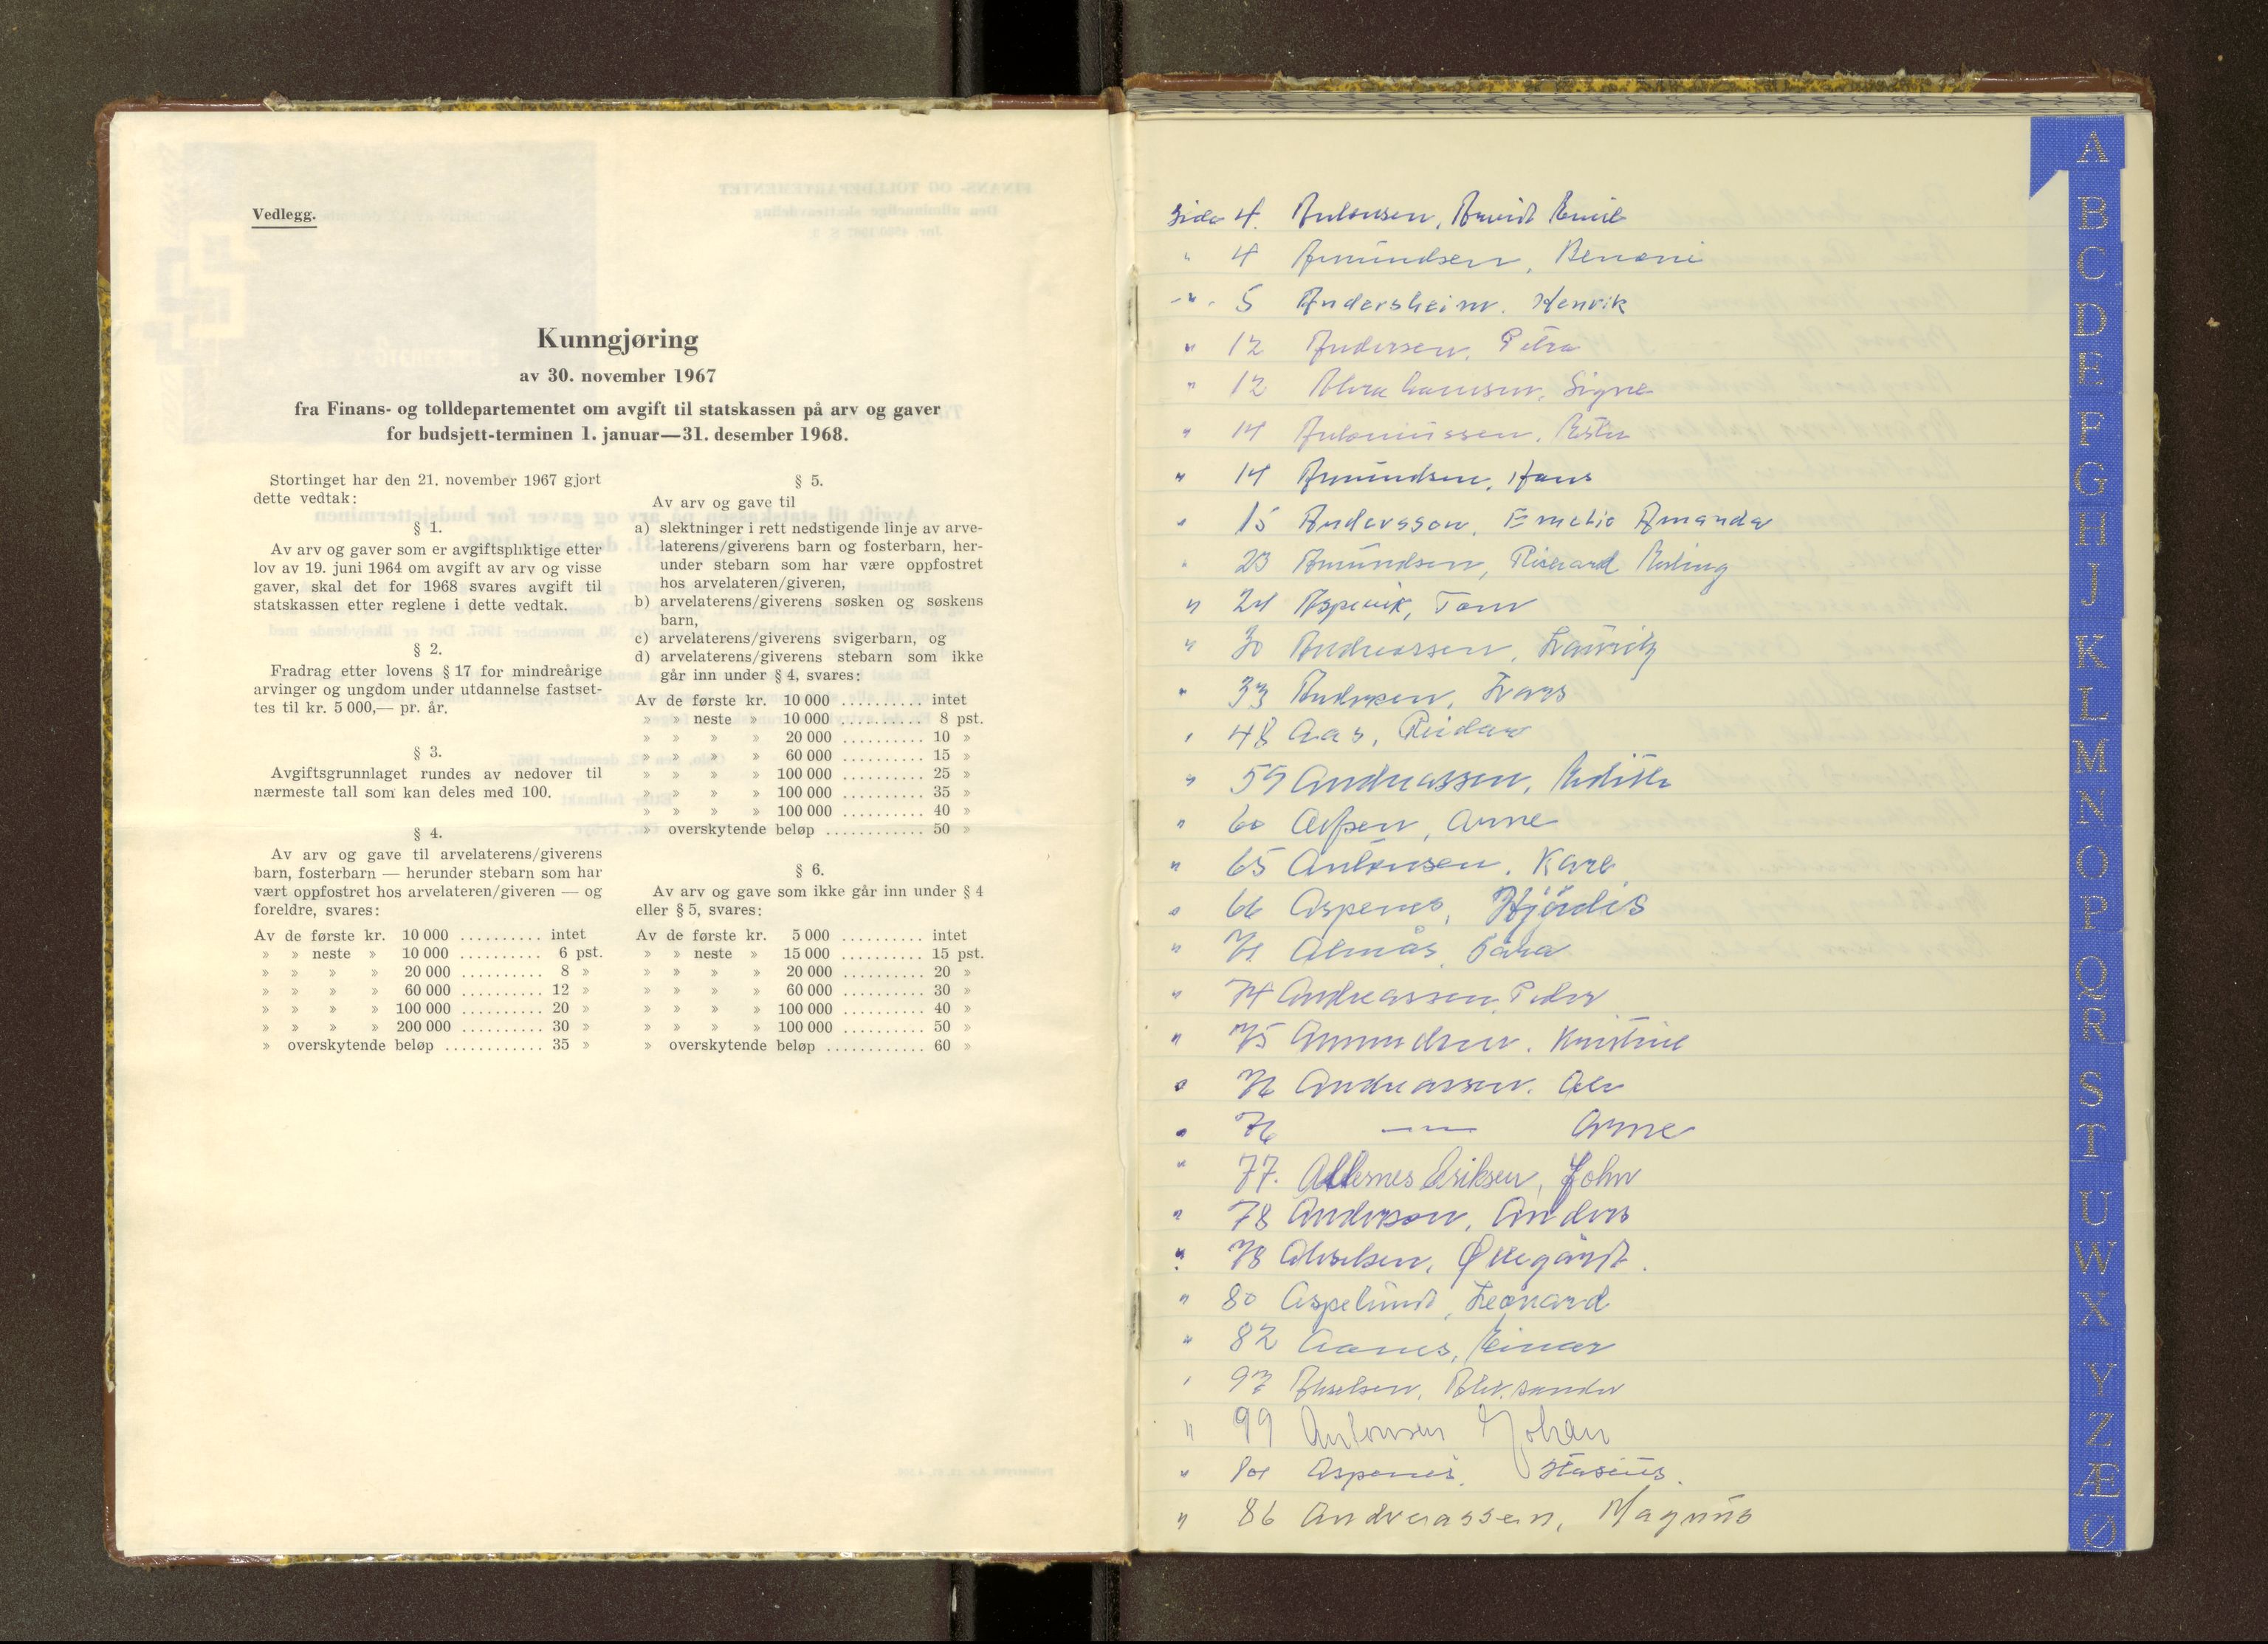 Vedlegg.
Kunngjøring
av 30. november 1967
fra Finans- og tolldepartementet om avgift til statskassen på arv og gaver
for budsjett-terminen 1. januar—31. desember 1968.
Stortinget har den 21. november 1967 gjort
dette vedtak:
§ 1.
Av arv og gaver som er avgiftspliktige etter
lov av 19. juni 1964 om avgift av arv og visse
gaver, skal det for 1968 svares avgift til
statskassen etter reglene i dette vedtak.
§ 2.
Fradrag etter lovens § 17 for mindreårige
arvinger og ungdom under utdannelse fastset-
tes til kr. 5 000,— pr. år.
§ 3.
Avgiftsgrunnlaget rundes av nedover til
nærmeste tall som kan deles med 100.
§ 4.
Av arv og gave til arvelaterens/giverens
barn, fosterbarn — herunder stebarn som har
vært oppfostret hos arvelateren/giveren — og
foreldre, svares:
Av de første kr. 10 000 .......... intet
» » neste » 10 000 .......... 6 pst.
» » » » 20 000 .......... 8 »
» » » » 60 000 .......... 12 »
» » » » 100 000 .......... 20 »
» » » » 200 000 .......... 30 »
» overskytende beløp ............ 35 »
§ 5.
Av arv og gave til
a) slektninger i rett nedstigende linje av arve-
laterens/giverens barn og fosterbarn, her-
under stebarn som har være oppfostret
hos arvelateren/giveren,
b) arvelaterens/giverens søsken og søskens
barn,
c) arvelaterens/giverens svigerbarn, og
d) arvelaterens/giverens stebarn som ikke
går inn under § 4, svares:
Av de første kr. 10 000 .......... intet
» » neste » 10 000 .......... 8 pst.
» » » » 20 000 .......... 10 »
» » » » 60 000 .......... 15 »
» » » » 100 000 .......... 25 »
» » » » 100 000 .......... 35 »
» » » » 100 000 .......... 40 »
» overskytende beløp ............ 50 »
§ 6.
Av arv og gave som ikke går inn under § 4
eller § 5, svares:
Av de første kr. 5 000 .......... intet
» » neste » 15 000 .......... 15 pst.
» » » » 20 000 .......... 20 »
» » » » 60 000 .......... 30 »
» » » » 100 000 .......... 40 »
» » » » 100 000 .......... 50 »
» overskytende beløp ............ 60 »
Side 4. Antonsen, Arvid Emil
" 4 Amundsen, Benoni
-"- 5 Andersheim. Henrik
" 12 Andersen, Petra
" 12 Abrahamsen, Signe
" 14 Antoniussen, Ester
" 14 Amundsen, Hans
" 15 Andersson, Amanda
" 23 Amundsen, Rikard Erling
" 24 Aspevik, Tom
" 30 Andreassen, Lauritz
" 33 Andersen, Lars
" 48 Aas, Reidar
" 59 Andreassen, Edith
" 60 Aspen, Arne
" 65 Antonsen. Kare
" 66 Aspenes, Hjördis
" 71 Almås, Sara
" 74 Andreassen, Peder
" 75 Amundsen. Kristine
" 76 Andreassen. Alv
" 76 — " — Arne
" 77. Allernes Eriksen, John
" 78 Anderson, Anders
" 78 Akselsen, Ø
" 80 Aspelund, Leonard
" 82 Aanes, Einar
" 97 Akselsen, Aleksander
" 99 Antonsen Johan
" Aspenes.
" 86 Andreassen, Magnus
A
B
C
D
E
F
G
H
J
K
L
M
N
O
P
Q
R
S
T
U
W
X
Y
Z
Æ
Ø